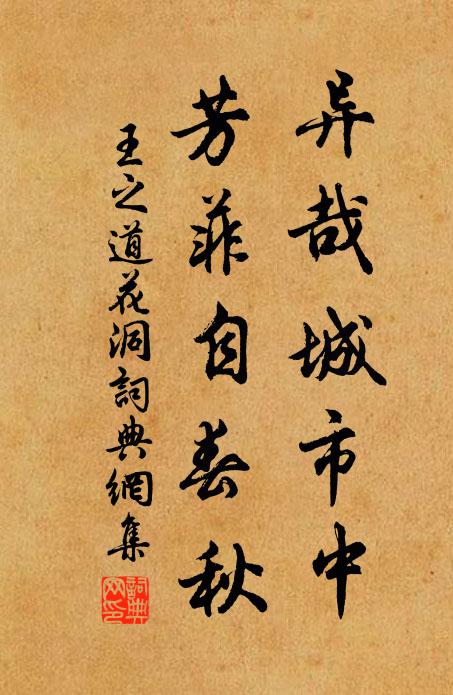 异哉城市中
芳菲自春秋
王之道花洞詞典網集
詞典網印